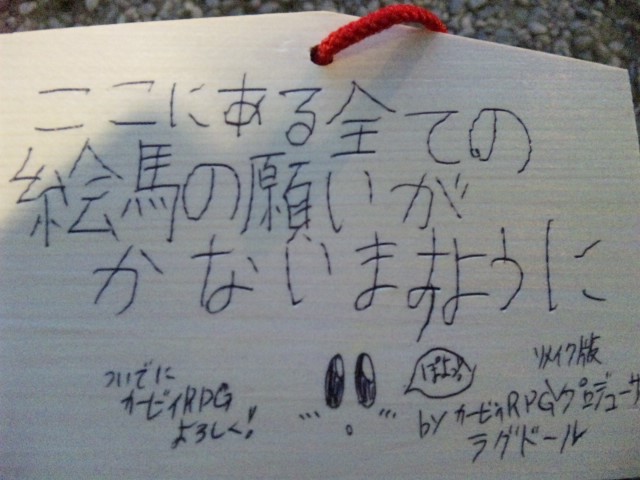 ここにある全ての
絵馬の願いが
かないますように
ついでに
カービィRPG
よろしく!
ぽよっ
リメイク版
by カービィRPGプロデューサ
ラグドール